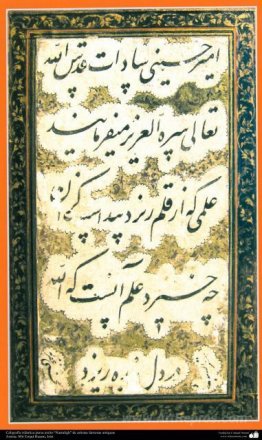 امیر حسینی سادات قدس الله
تعالی سره العزیز میفرمایند
علمی که از قلم ریزد پیداست کزان
چه خیزد علم آنست که الله
در دل بنده ریزد
Caligrafía islámica persa estilo "Nastaligh" de artistas famosos antiguos
Artista: Mir Emad Hasani, Iran